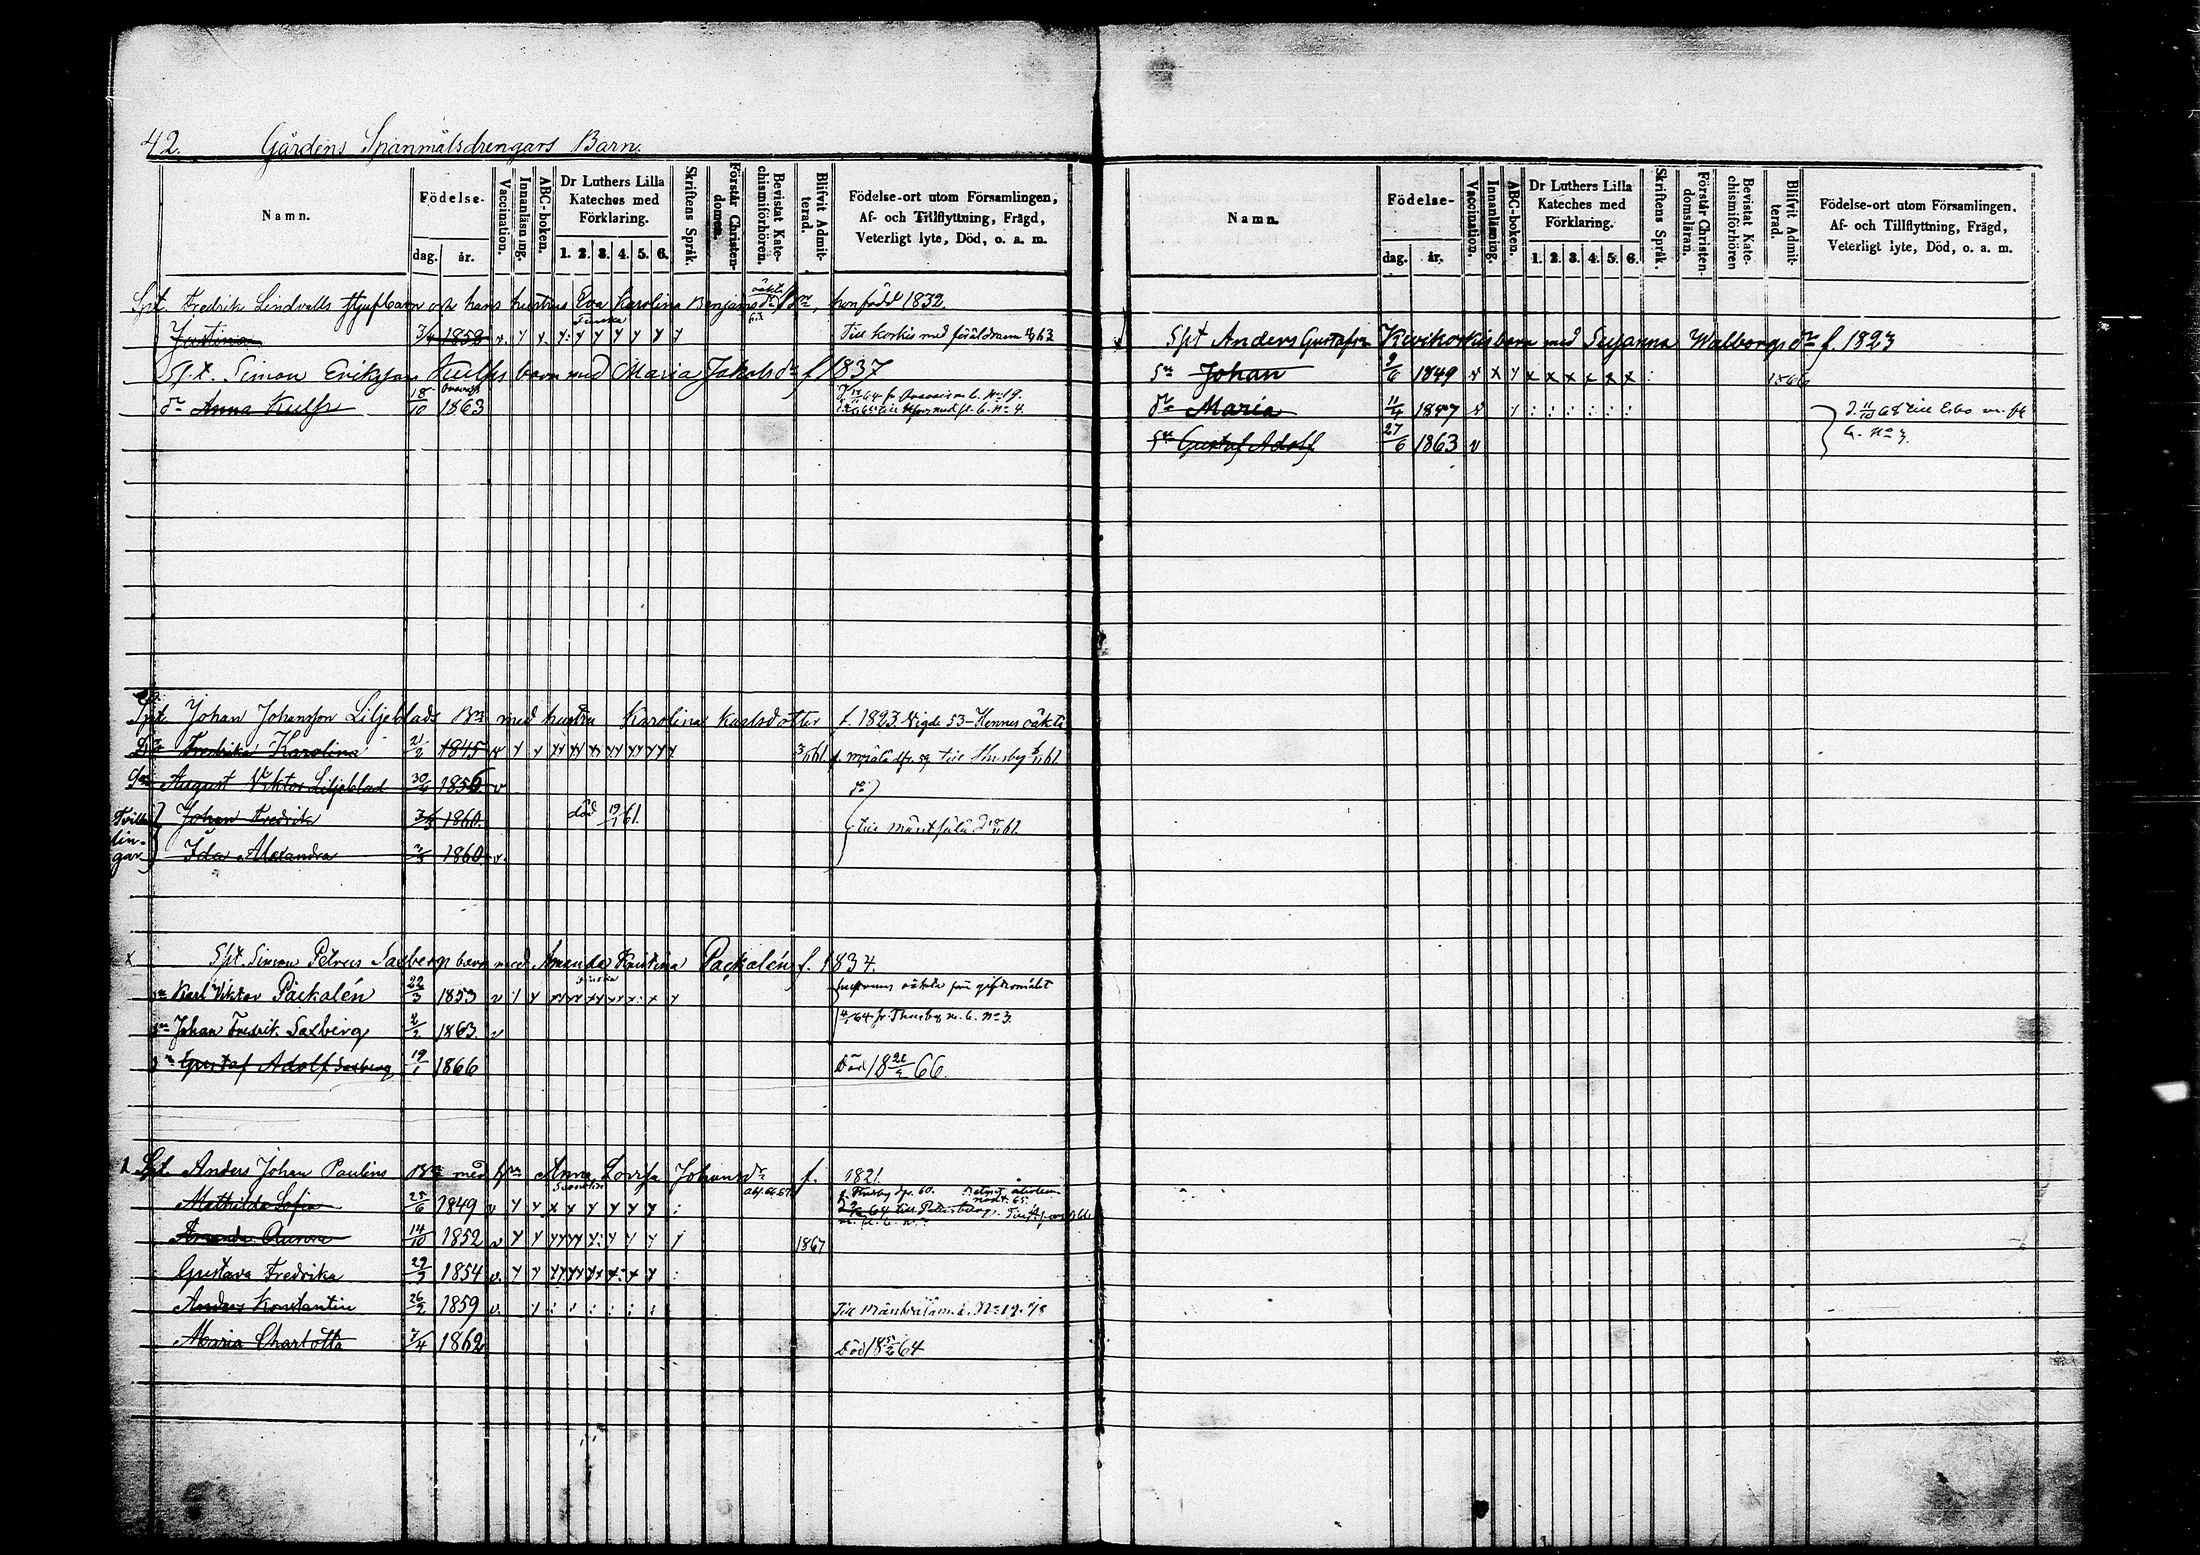 42. Gårdens Spanmålsdrengars Barn.
Namn. Födelse- dag. år. Vaccination. Innanläsning. ABC-boken. Dr Luthers Lilla Kateches med Förklaring. 1. 2. 3. 4. 5. 6. Skriftens Språk. Förstår Christendomen. Bevistat Katechismiförhören. Blifvit Admitterad. Födelse-ort utom Församlingen, Af- och Tillflyttning, Frägd, Veterligt lyte, Död, o. a. m.
Spt. Fredrik Lindvalls Styfbarn och hans hustrus Eva Karolina Benjamsdr oäkta dr, hon född 1832.
Finska
Justina 3/4 1858 v. Till Korkis med föräldrarna 63
Spt. Simon Erikssons Kulps barn med Maria Jakobsdr f. 1837
dr Anna Kulp 18/10 1863
Spt. Johan Johansson Liljeblads Bn med hustru Karolina Karlsdotter f. 1823 Vigde 53 - Hennes oäkta
Dr Fredrika Karolina 2/2 1845 v 3/11 61. till Thusby 61.
Sn August Viktor Liljeblad 30/4 1856 v
Tvillingar
Johan Fredrik 7/3 1860. död 19/1 61.
till Mäntsälä 61.
Ida Alexandra 7/3 1860. v.
x Spt. Simon Petrus Saxbergs barn med Amanda Kristina Päckalén f. 1834.
Finska
sn Karl Viktor Päckalén 22/3 1853 v hustruns oäkta före giftermålet
sn Johan Fredrik Saxberg 2/2 1863. v 64 fr. Thusby m. b. No 3.
sn Gustaf Adolf Saxberg 19/1 1866 Död 18 21/2 66.
1 Spt. Anders Johan Paulins Bn med hu Anna Lovisa Johansdr f. 1821.
Svenska
Mathilda Sofia 25/6 1849 v
Amanda Aurora 14/10 1852 v 1867
Gustava Fredrika 29/9 1854 v.
Anders Konstantin 26/2 1859 v. Till Mäntsälä m. b. No 19.
Maria Charlotta 7/4 1862 Död 18 5/2 64
Namn. Födelse- dag. år. Vaccination. Innanläsning. ABC-boken. Dr Luthers Lilla Kateches med Förklaring. 1. 2. 3. 4. 5. 6. Skriftens Språk. Förstår Christendomsläran. Bevistat Katechismiförhören Blifvit Admitterad. Födelse-ort utom Församlingen, Af- och Tillflyttning, Frägd, Veterligt lyte, Död, o. a. m.
Spt Anders Gustafsn Kevikoskis barn med Susanna Walborgsdr f. 1823
Sn Johan 9/6 1849 v x y x x x x x x : 1866
dr Maria 11/4 1857 v y : : : : : : d. 11/10 68 till Esbo m. fl.
b. No 3.
Sn Gustaf Adolf 27/6 1863 v